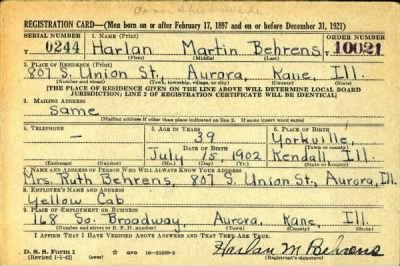 REGISTRATION CARD—(Men born on or after February 17, 1897 and on or before December 31, 1921)
SERIAL NUMBER 1. NAME (Print) ORDER NUMBER
T 0244 Harlan Martin Behrens T 10021
(First) (Middle) (Last)
2. PLACE OF RESIDENCE (Print)
807 S. Union St., Aurora, Kane, Ill.
(Number and street) (Town, township, village, or city) (County) (State)
[THE PLACE OF RESIDENCE GIVEN ON THE LINE ABOVE WILL DETERMINE LOCAL BOARD
JURISDICTION; LINE 2 OF REGISTRATION CERTIFICATE WILL BE IDENTICAL]
3. MAILING ADDRESS
Same
[Mailing address if other than place indicated on line 2. If same insert word same]
4. TELEPHONE 5. AGE IN YEARS 6. PLACE OF BIRTH
— 39 Yorkville,
DATE OF BIRTH (Town or county)
July 15, 1902 Kendall Ill.
(Exchange) (Number) (Mo.) (Day) (Yr.) (State or country)
7. NAME AND ADDRESS OF PERSON WHO WILL ALWAYS KNOW YOUR ADDRESS
Mrs. Ruth Behrens, 807 S. Union St., Aurora, Ill.
8. EMPLOYER'S NAME AND ADDRESS
Yellow Cab
9. PLACE OF EMPLOYMENT OR BUSINESS
168 So. Broadway, Aurora, Kane, Ill.
(Number and street or R. F. D. number) (Town) (County) (State)
I AFFIRM THAT I HAVE VERIFIED ABOVE ANSWERS AND THAT THEY ARE TRUE.
D. S. S. Form 1
(Revised 1-5-42) (over) GPO Harlan M Behrens
(Registrant's signature)